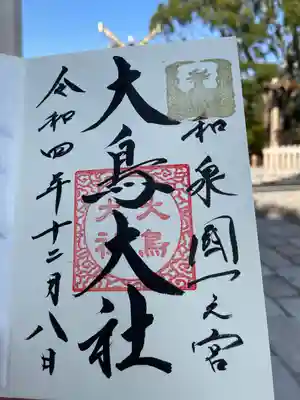 和泉國一之宮
大鳥大社
大鳥
大社
令和四年十二月八日